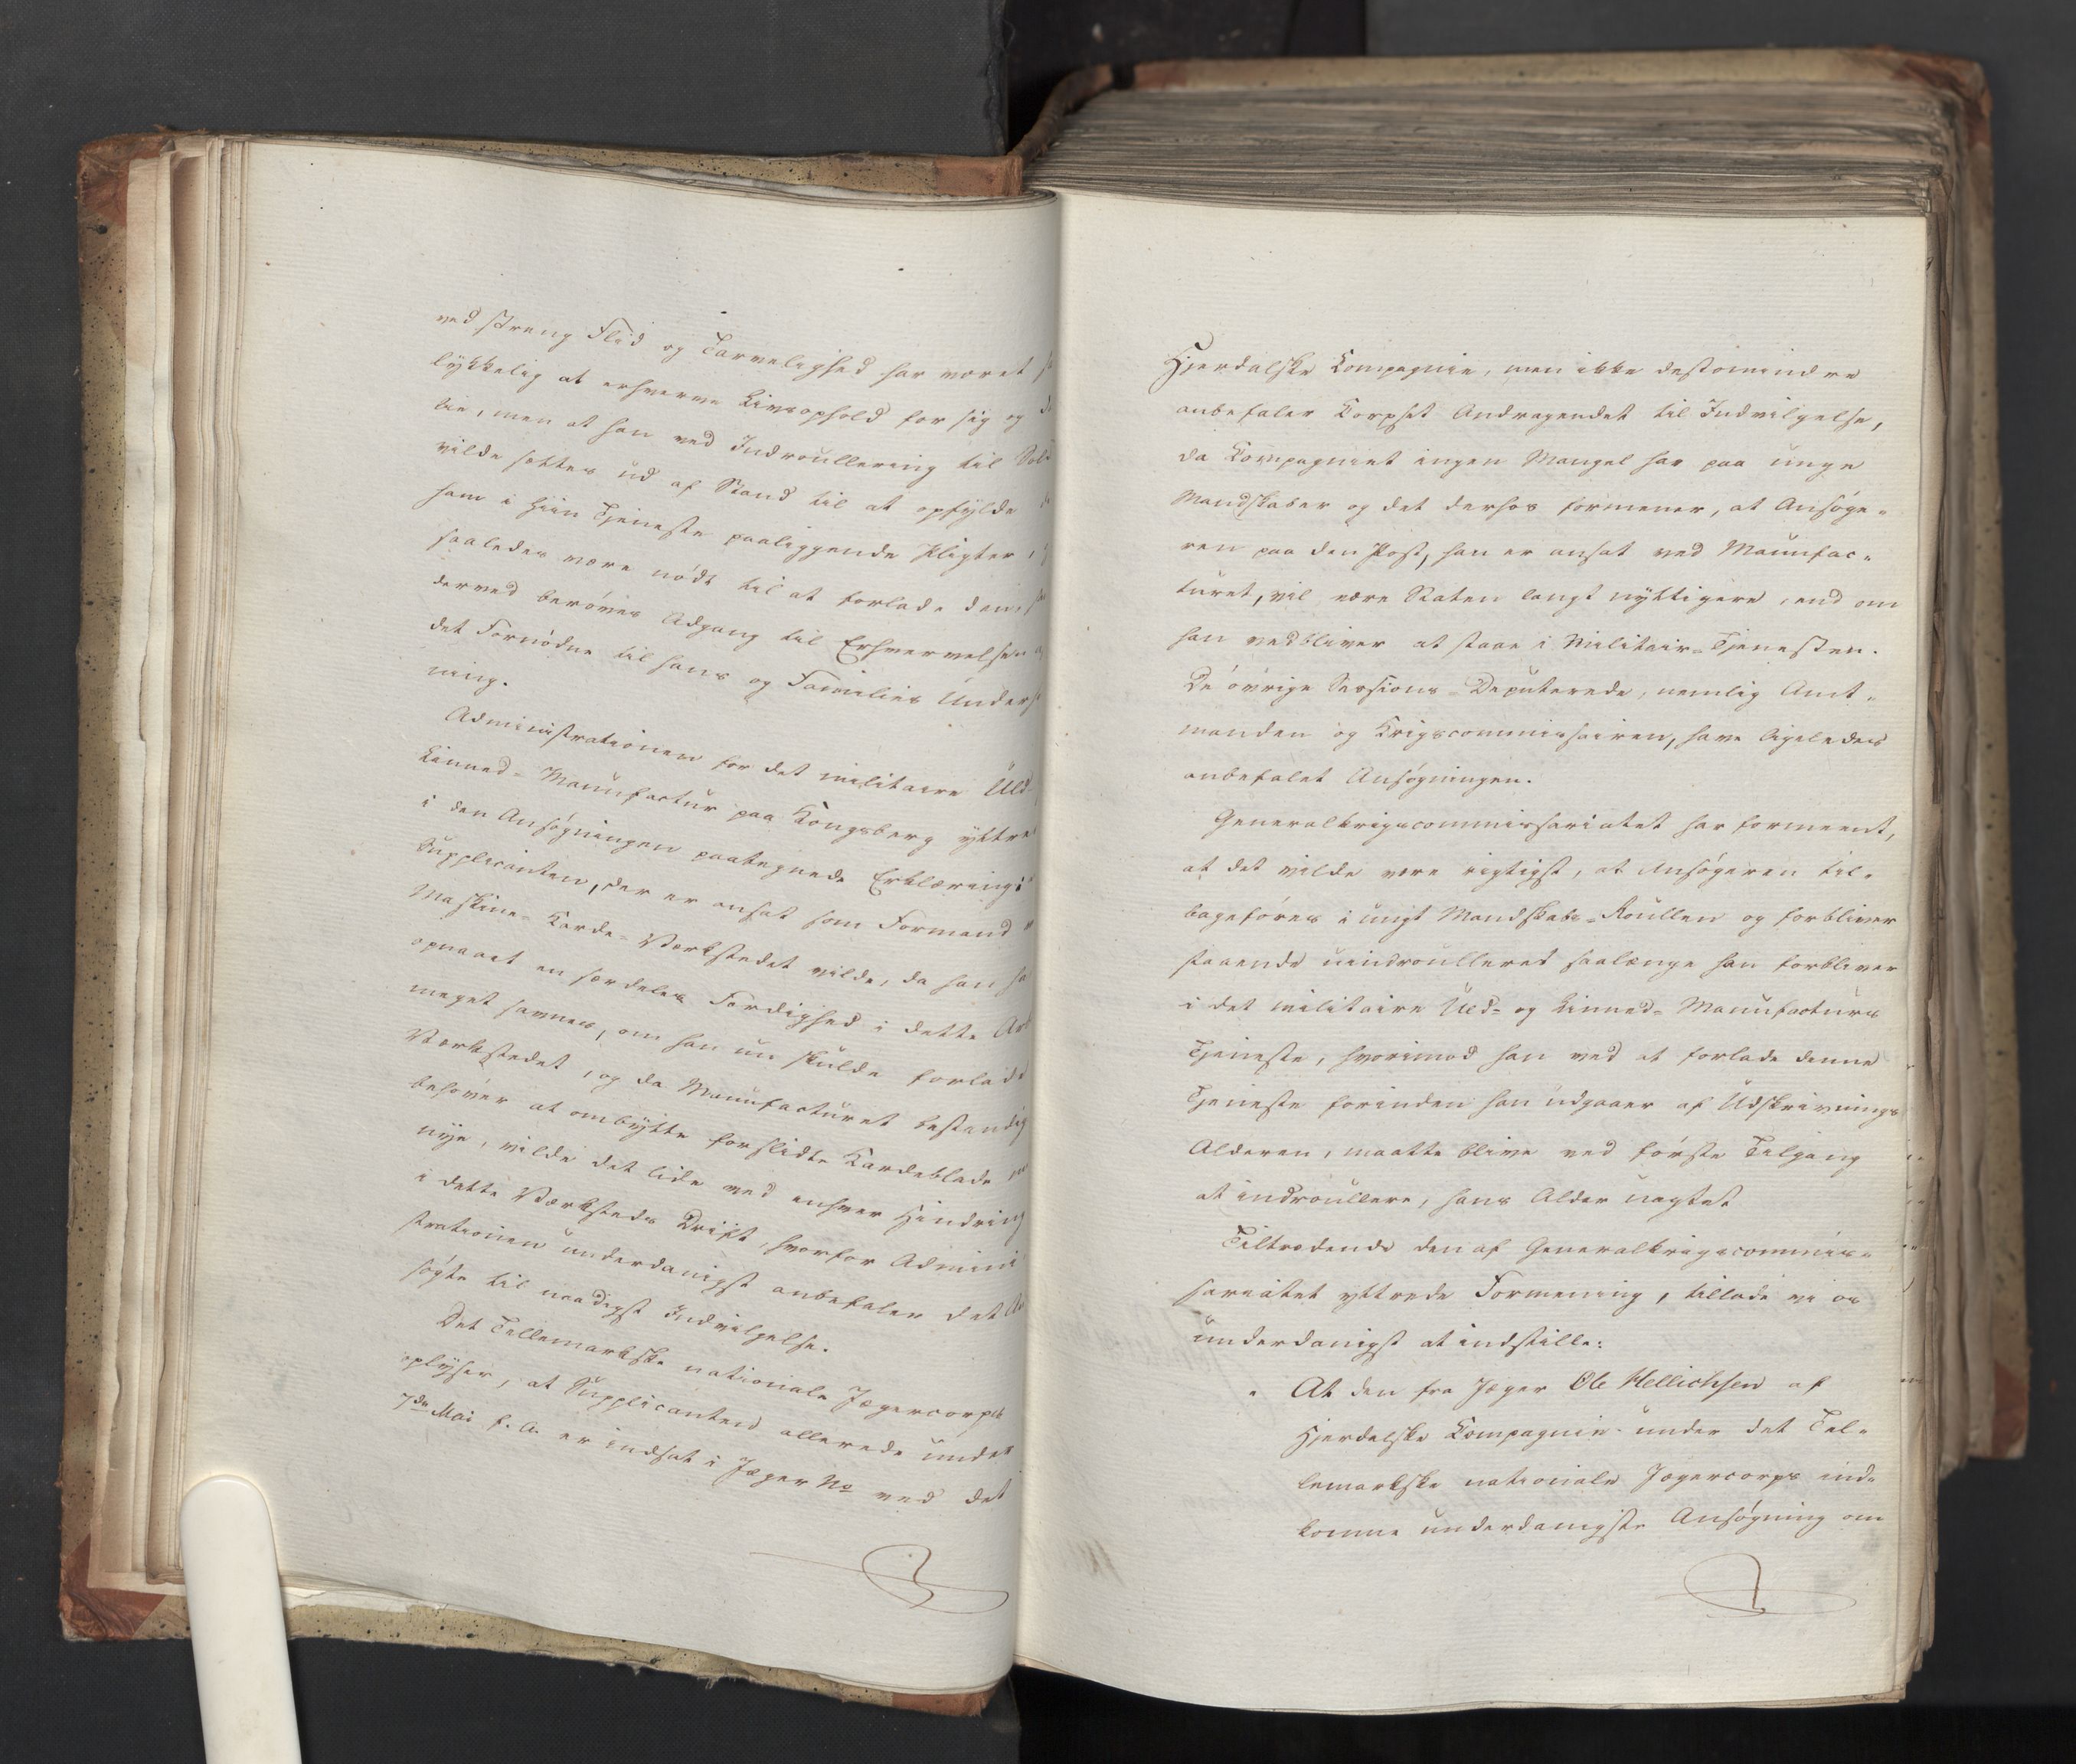 ved streng Flid og Tarvelighed har været
lykkelig at erhverve Livsophold for sig og
lie, men at han ved Indroullering til Sold
vilde sættes ud af Stand til at opfylde
ham i hiin Tjeneste paaliggende Pligter,
saaledes være nødt til at forlade den,
derved berøves Adgang til Erhvervelsen
det Fornødne til hans og Families Under
ning.
Administrationen for det militaire Uld-
Linned-Manufactur paa Kongsberg yttre
i den Ansøgningen paategnede Erklæring
Supplicanten, der er ansat som Formand
Maskine-Karde-Værkstedet vilde, da han ha
opnaaet en særdeles Færdighed i dette Arb
meget savnes, om han nu skulde forlade
Værkstedet, og da Manufacturet bestandig
behøver at ombytte forslidte Kardeblade
nye, vilde det lide ved enhver Hindring
i dette Værksteds Drift, hvorfor Admini
strationen underdanigst anbefaler det An
søgte til naadigst Indvilgelse.
Det Tellemarkske nationale Jægercorps
oplyser, at Supplicanten allerede under
7de Mai f. A. er indsat i Jæger No ved det
Hjerdalske Kompagnie, men ikke destomindre
anbefaler Korpset Andragendet til Indvilgelse,
da Kompagniet ingen Mangel har paa unge
Mandskaber og det derhos formener, at Ansøge-
ren paa den Post, han er ansat ved Manufac-
turet, vil være Staten langt nyttigere, end om
han vedbliver at staae i Militair-Tjenesten.
De øvrige Sessions-Deputerede, nemlig Amt-
manden og Krigscommissairen, have ligeledes
anbefalet Ansøgningen.
Generalkrigscommissariatet har formeent,
at det vilde være rigtigst, at Ansøgeren til-
bageføres i ungt Mandskabs-Roullen og forbliver
staaende uindroulleret saalænge han forbliver
i det militaire Uld- og Linned-Manufacturs
Tjeneste, hvorimod han ved at forlade denne
Tjeneste forinden han udgaaer af Udskrivnings
Alderen, maatte blive ved første Tilgang
at indroullere, hans Alder uagtet
Tiltrædende den af Generalkrigscommis-
sariatet yttrede Formening, tillade vi os
underdanigst at indstille:
" At den fra Jæger Ole Mellichsen af
Hjerdalske Kompagnie under det Tel-
lemarkske nationale Jægercorps ind-
komne underdanigste Ansøgning om